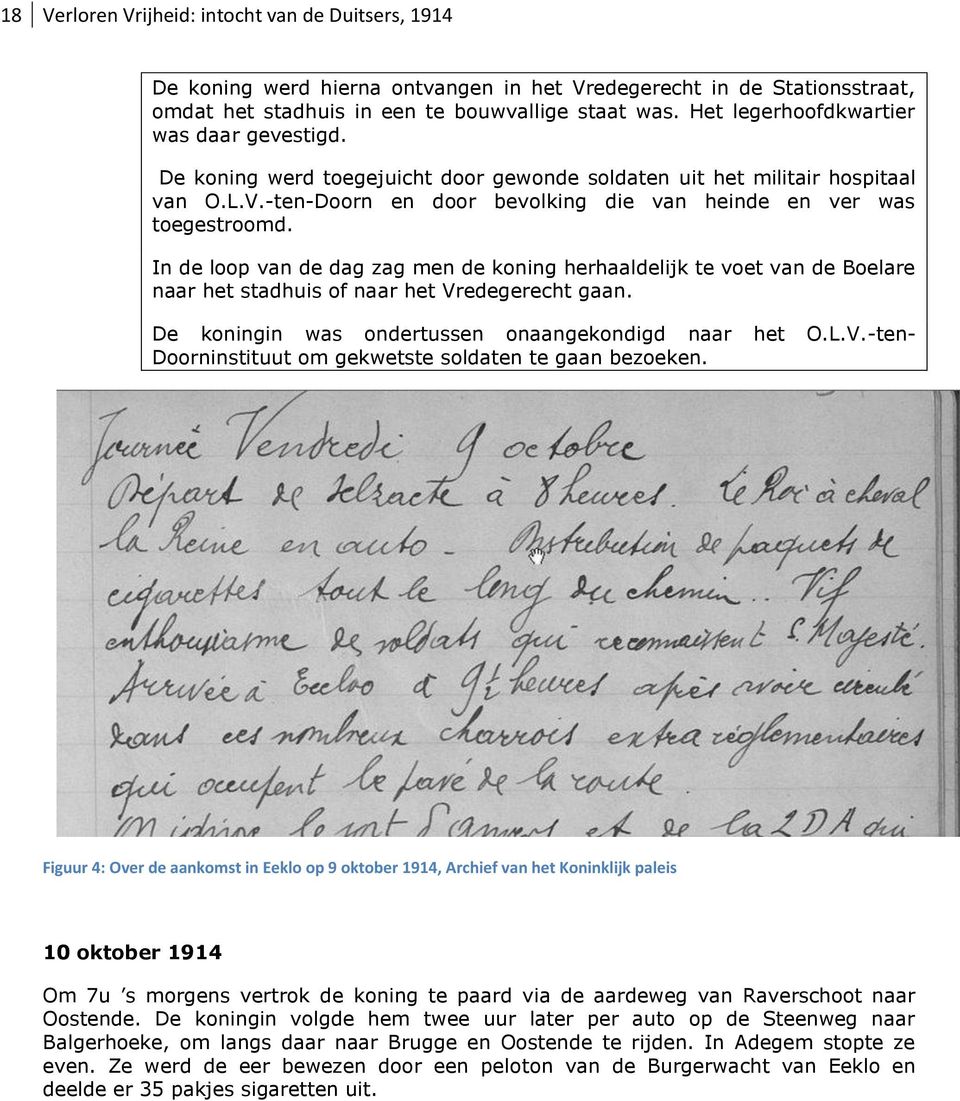 18 Verloren Vrijheid: intocht van de Duitsers, 1914
De koning werd hierna ontvangen in het Vredegerecht in de Stationsstraat,
omdat het stadhuis in een te bouwvallige staat was. Het legerhoofdkwartier
was daar gevestigd.
De koning werd toegejuicht door gewonde soldaten uit het militair hospitaal
van O.L.V.-ten-Doorn en door bevolking die van heinde en ver was
toegestroomd.
In de loop van de dag zag men de koning herhaaldelijk te voet van de Boelare
naar het stadhuis of naar het Vredegerecht gaan.
De koningin was ondertussen onaangekondigd naar het O.L.V.-ten-
Doorninstituut om gekwetste soldaten te gaan bezoeken.
Journée Vendredi 9 octobre
Départ de Selzaete à 8 heures. Le Roi à cheval
la Reine en auto - Distribution de paquets de
cigarettes tout le long du chemin.. Vif
enthousiasme de soldats qui reconnaissent S. Majesté.
Arrivée à Eecloo à 9½ heures après avoir circulé
dans ces nombreux charrois extra réglementaires
qui occupent le pavé de la route.
le fort d'Anvers et de la 2 DA qui
Figuur 4: Over de aankomst in Eeklo op 9 oktober 1914, Archief van het Koninklijk paleis
10 oktober 1914
Om 7u 's morgens vertrok de koning te paard via de aardeweg van Raverschoot naar
Oostende. De koningin volgde hem twee uur later per auto op de Steenweg naar
Balgerhoeke, om langs daar naar Brugge en Oostende te rijden. In Adegem stopte ze
even. Ze werd de eer bewezen door een peloton van de Burgerwacht van Eeklo en
deelde er 35 pakjes sigaretten uit.